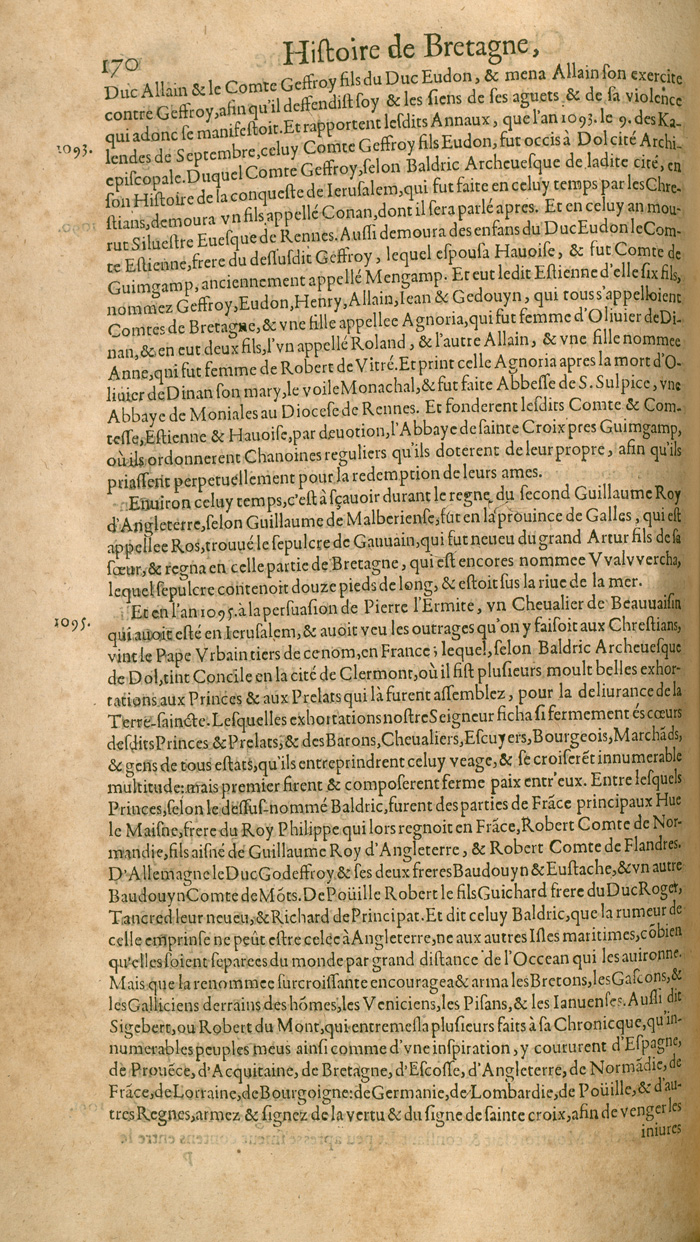 170
Hiſtoire de Bretagne,
Duc Allain & le Comte Geffroy fils du Duc Eudon, & mena Allain ſon exercite
contre Geffroy, afin qu'il deffendiſt ſoy & les ſiens de ſes aguets & de ſa violēce
qui adonc ſe manifeſtoit. Et rapportent leſdits Annaux, que l'an 1093. le 9. des Ka-
1093.
lendes de Septembre, celuy Comte Geffroy fils Eudon, fut occis à Dol cité Archi-
epiſcopale. Duquel Comte Geffroy, ſelon Baldric Archeueſque de ladite cité, en
ſon Hiſtoire de la conqueſte de Ieruſalem, qui fut faite en celuy temps par les Chre-
ſtians, demoura vn fils appellé Conan, dont il ſera parlé apres. Et en celuy an mou-
rut Silueſtre Eueſque de Rennes. Auſſi demoura des enfans du Duc Eudon le Com-
te Eſtienne, frere du deſſuſdit Geffroy, lequel eſpouſa Hauoiſe, & fut Comte de
Guimgamp, anciennement appellé Mengamp. Et eut ledit Eſtienne d'elle ſix fils,
nommez Geffroy, Eudon, Henry, Allain, Iean & Gedouyn, qui tous s'appelloient
Comtes de Bretagne, & vne fille appellee Agnoria, qui fut femme d'Oliuier de Di-
nan, & en eut deux fils, l'vn appellé Roland, & l'autre Allain, & vne fille nommee
Anne, qui fut femme de Robert de Vitré. Et print celle Agnoria apres la mort d'O-
liuier de Dinan ſon mary, le voile Monachal, & fut faite Abbeſſe de S. Sulpice, vne
Abbaye de Moniales au Dioceſe de Rennes. Et fonderent leſdits Comte & Com-
teſſe, Eſtienne & Hauoiſe, par deuotion, l'Abbaye de ſainte Croix pres Guimgamp,
où ils ordonnerent Chanoines reguliers qu'ils doterent de leur propre, afin qu'ils
priaſſent perpetuellement pour la redemption de leurs ames.
Enuiron celuy temps, c'eſt à ſçauoir durant le regne du ſecond Guillaume Roy
d'Angleterre, ſelon Guillaume de Malberienſe, fut en la prouince de Galles, qui eſt
appellee Ros, trouué le ſepulcre de Gauuain, qui fut neueu du grand Artur fils de ſa
ſœur, & regna en celle partie de Bretagne, qui eſt encores nommee Vvalvvercha,
lequel ſepulcre contenoit douze pieds de long, & eſtoit ſus la riue de la mer.
Et en l'an 1095. à la perſuaſion de Pierre l'Ermite, vn Cheualier de Beauuaiſin
1095.
qui auoit eſté en Ieruſalem, & auoit veu les outrages qu'on y faiſoit aux Chreſtians,
vint le Pape Vrbain tiers de ce nom, en France; lequel, ſelon Baldric Archeueſque
de Dol, tint Concile en la cité de Clermont, où il fiſt pluſieurs moult belles exhor-
tations aux Princes & aux Prelats qui là furent aſſemblez, pour la deliurance de la
Terre-ſaincte. Leſquelles exhortations noſtre Seigneur ficha ſi fermement és cœurs
deſdits Princes & Prelats, & des Barons, Cheualiers, Eſcuyers, Bourgeois, Marchāds,
& gens de tous eſtats, qu'ils entreprindrent celuy veage, & ſe croiſerēt innumerable
multitude: mais premier firent & compoſerent ferme paix entr'eux. Entre leſquels
Princes, ſelon le deſſuſ-nommé Baldric, furent des parties de Frāce principaux Hue
le Maiſne, frere du Roy Philippe qui lors regnoit en Frāce, Robert Comte de Nor-
mandie, fils aiſné de Guillaume Roy d'Angleterre, & Robert Comte de Flandres.
D'Allemagne le Duc Godeffroy & ſes deux freres Baudouyn & Euſtache, & vn autre
Baudouyn Comte de Mōts. De Poüille Robert le fils Guichard frere du Duc Roger,
Tancred leur neueu, & Richard de Principat. Et dit celuy Baldric, que la rumeur de
celle emprinſe ne peût eſtre celee à Angleterre, ne aux autres Iſles maritimes, cōbien
qu'elles ſoient ſeparees du monde par grand diſtance de l'Occean qui les auironne.
Mais que la renommee ſurcroiſſante encouragea & arma les Bretons, les Gaſcons, &
les Galliciens derrains des hōmes, les Veniciens, les Piſans, & les Ianuenſes. Auſſi dit
Sigebert, ou Robert du Mont, qui entremeſla pluſieurs faits à ſa Chronicque, qu'in-
numerables peuples meus ainſi comme d'vne inſpiration, y coururent d'Eſpagne,
de Prouēce, d'Acquitaine, de Bretagne, d'Eſcoſſe, d'Angleterre, de Normādie, de
Frāce, de Lorraine, de Bourgoigne: de Germanie, de Lombardie, de Poüille, & d'au-
tres Regnes, armez & ſignez de la vertu & du ſigne de ſainte croix, afin de venger les
iniures